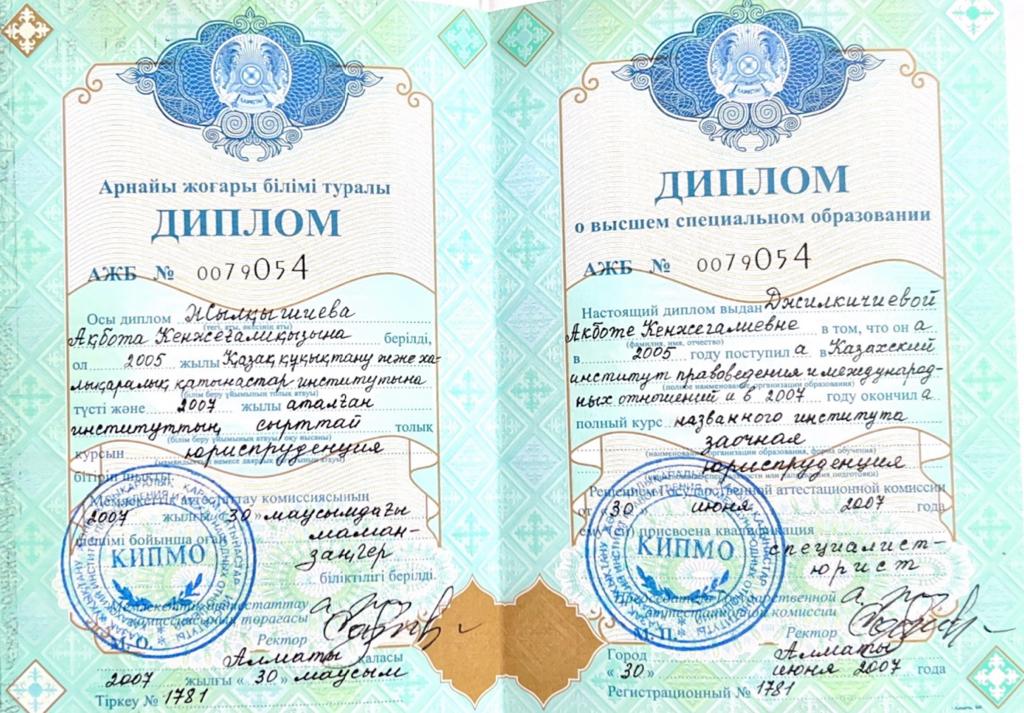 Арнайы жоғары білімі туралы
ДИПЛОМ
АЖБ № 0079054
Осы диплом Жылқышиева
(тегі, аты, әкесінің аты)
Ақбота Кенжеғалиқызына берілді,
ол 2005 жылы Қазақ құқықтану және ха-
лықаралық қатынастар институтына
(білім беру ұйымының толық атауы)
түсті және 2007 жылы аталған
институттың сырттай толық
(білім беру ұйымының атауы, оқу нысаны)
курсын юриспруденция
бітіріп шықты
Мемлекеттік аттестаттау комиссиясының
2007 жылғы «30» маусымдағы
шешімі бойынша оған маман-
заңгер
біліктілігі берілді.
Мемлекеттік аттестаттау
комиссиясының төрағасы
М.О. Ректор
Алматы қаласы
2007 жылғы «30» маусым
Тіркеу № 1781
КИПМО
ДИПЛОМ
о высшем специальном образовании
АЖБ № 0079054
Настоящий диплом выдан Джилкичиевой
Акботе Кенжегалиевне в том, что он а
(фамилия, имя, отчество)
в 2005 году поступил а в Казахский
институт правоведения и международ-
(полное наименование организации образования)
ных отношений и в 2007 году окончил а
полный курс названного института
заочная
(наименование организации образования, форма обучения)
юриспруденция
Решением Государственной аттестационной комиссии
от «30» июня 2007 года
ему (ей) присвоена квалификация
специалист-
юрист
Председатель Государственной
аттестационной комиссии
М.П. Ректор
Город Алматы
«30» июня 2007 года
Регистрационный № 1781
КИПМО